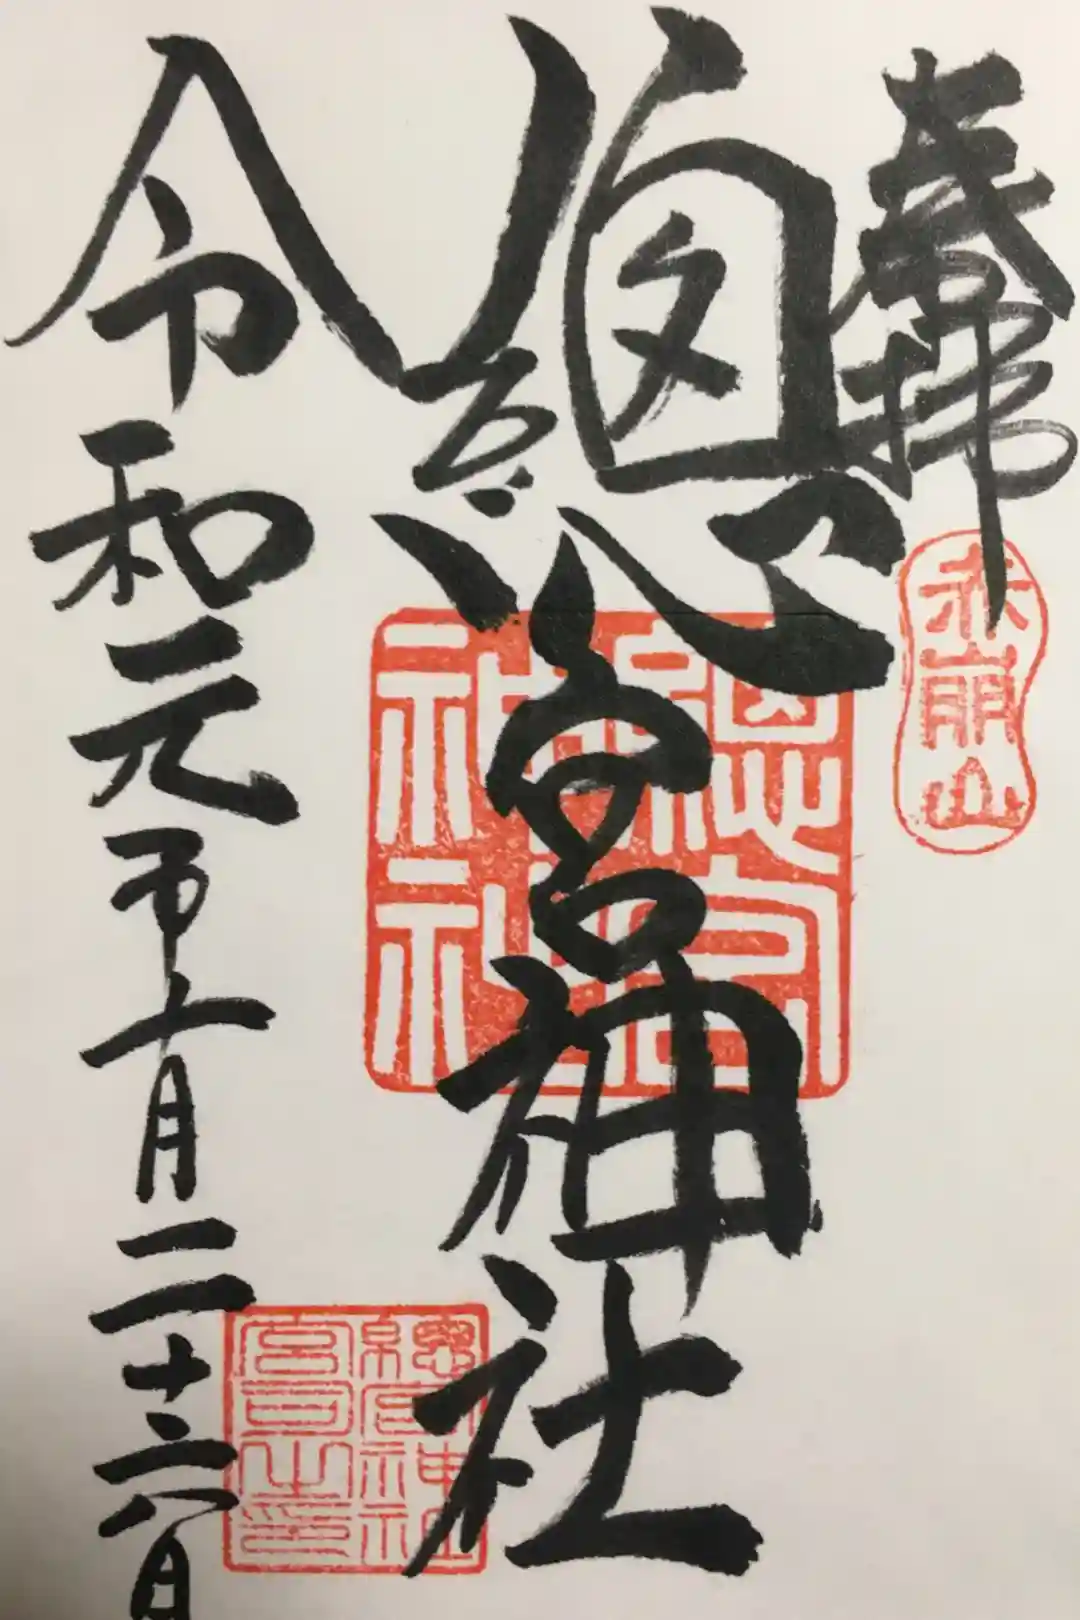 奉拝
赤崩山
總宮神社
總宮
神社
令和元年十月二十六日
總宮神社
宮司之印